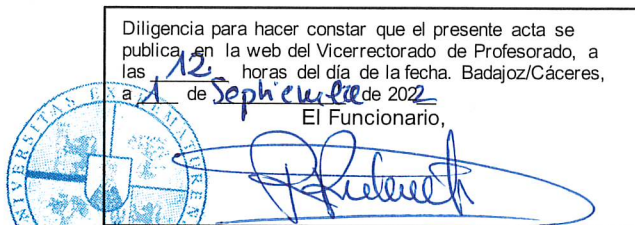 Diligencia para hacer constar que el presente acta se
publica, en la web del Vicerrectorado de Profesorado, a
las 12 horas del día de la fecha. Badajoz/Cáceres,
a 1 de Septiembre de 2022
El Funcionario,